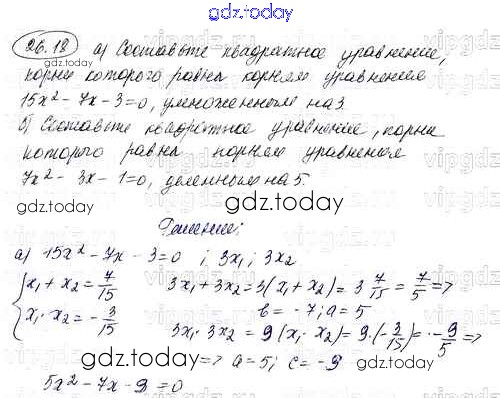 gdz.today
26.18 а) Составьте квадратное уравнение,
корни которого равны корням уравнения
gdz.today
15x² - 7x - 3 = 0, умноженным на 3.
б) Составьте квадратное уравнение, корни
которого равны корням уравнения
7x² - 3x - 1 = 0, деленным на 5.
gdz.today
Решение:
а) 15x² - 7x - 3 = 0 ; 3x₁ ; 3x₂
{ x₁ + x₂ = 7/15 3x₁ + 3x₂ = 3(x₁ + x₂) = 3 7/15 = 7/5 =>
gdz.today
b = -7; a = 5
x₁ · x₂ = -3/15 3x₁ · 3x₂ = 9(x₁ · x₂) = 9 · (-3/15) = -9/5 =>
gdz.today
=> a = 5; c = -9
5x² - 7x - 9 = 0
gdz.today